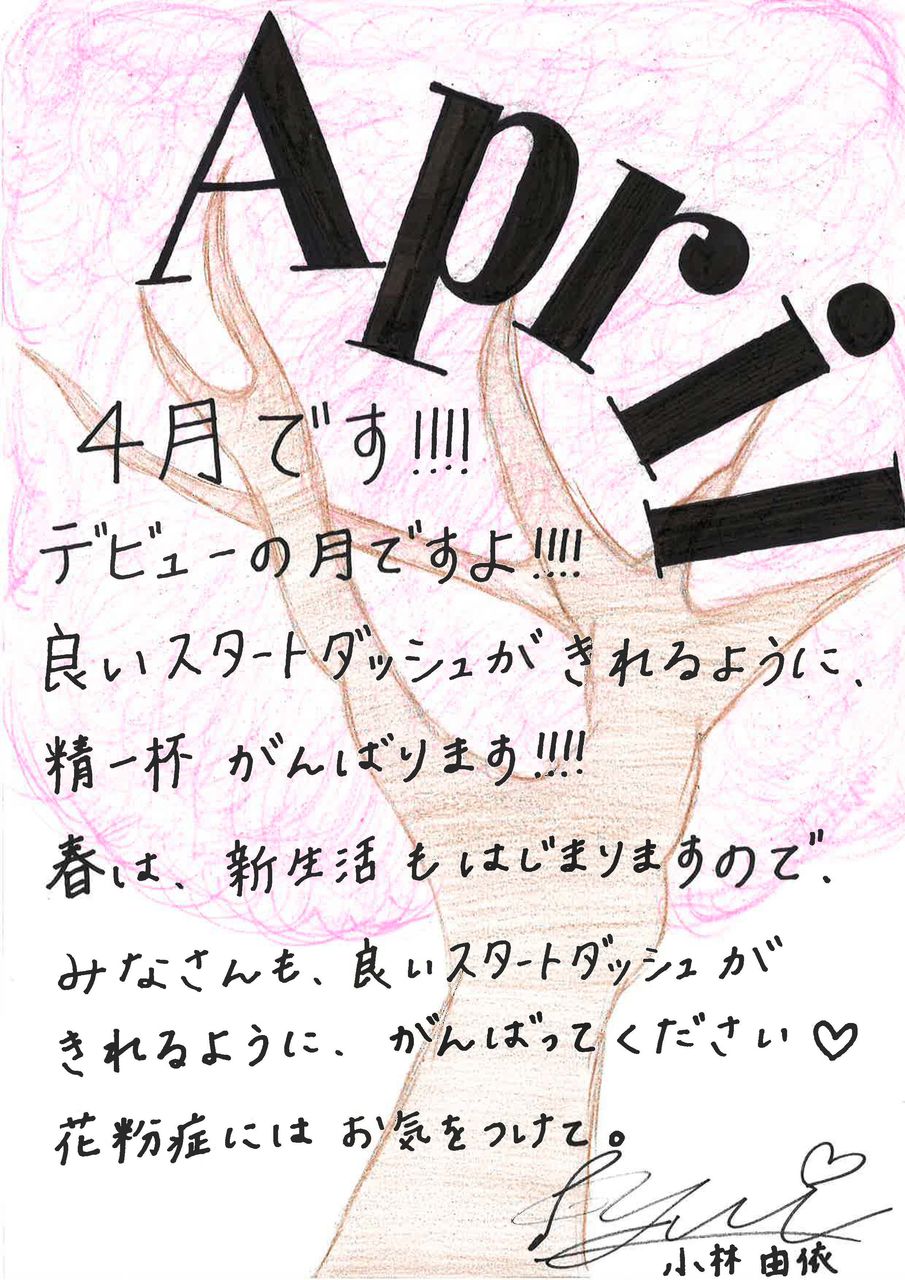 April
4月です!!!!
デビューの月ですよ!!!!
良いスタートダッシュがきれるように、
精一杯 がんばります!!!!
春は、新生活もはじまりますので、
みなさんも、良いスタートダッシュが
きれるように、がんばってください♡
花粉症にはお気をつけて。
Yui
小林 由依